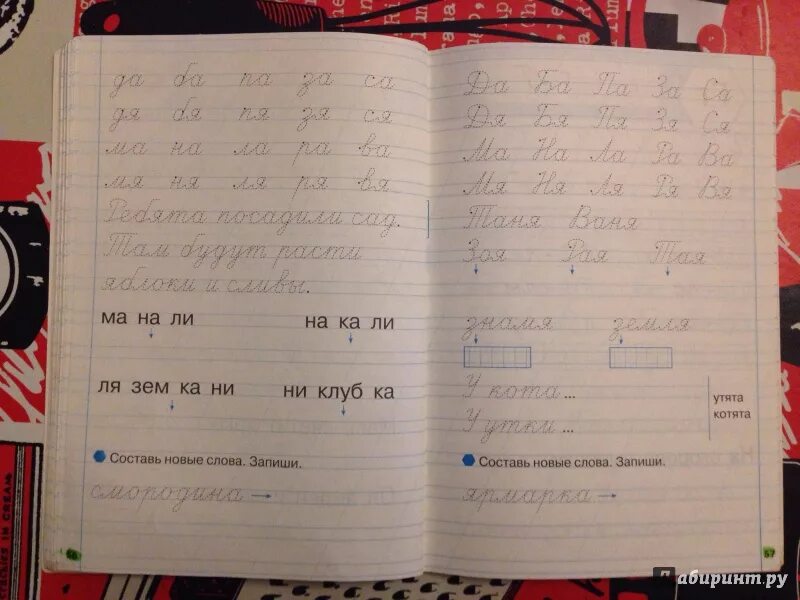 да ба па за са
дя бя пя зя ся
ма на ла ра ва
мя ня ля ря вя
Ребята посадили сад.
Там будут расти
яблоки и сливы.
ма на ли на ка ли
ля зем ка ни ни клуб ка
Составь новые слова. Запиши.
смородина →
56
Да Ба Па За Са
Дя Бя Пя Зя Ся
Ма На Ла Ра Ва
Мя Ня Ля Ря Вя
Таня Ваня
Зоя Рая Тая
знамя земля
У кота ...
У утки ...
утята
котята
Составь новые слова. Запиши.
ярмарка →
57
Лабиринт.ру